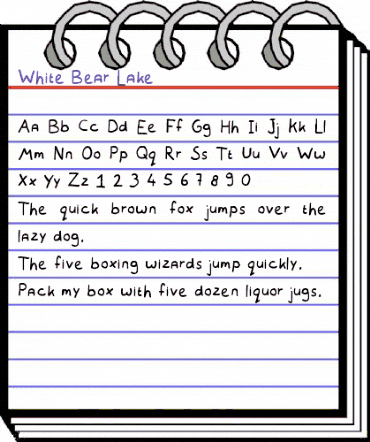 White Bear Lake
Aa Bb Cc Dd Ee Ff Gg Hh Ii Jj Kk Ll
Mm Nn Oo Pp Qq Rr Ss Tt Uu Vv Ww
Xx Yy Zz 1 2 3 4 5 6 7 8 9 0
The quick brown fox jumps over the
lazy dog.
The five boxing wizards jump quickly.
Pack my box with five dozen liquor jugs.